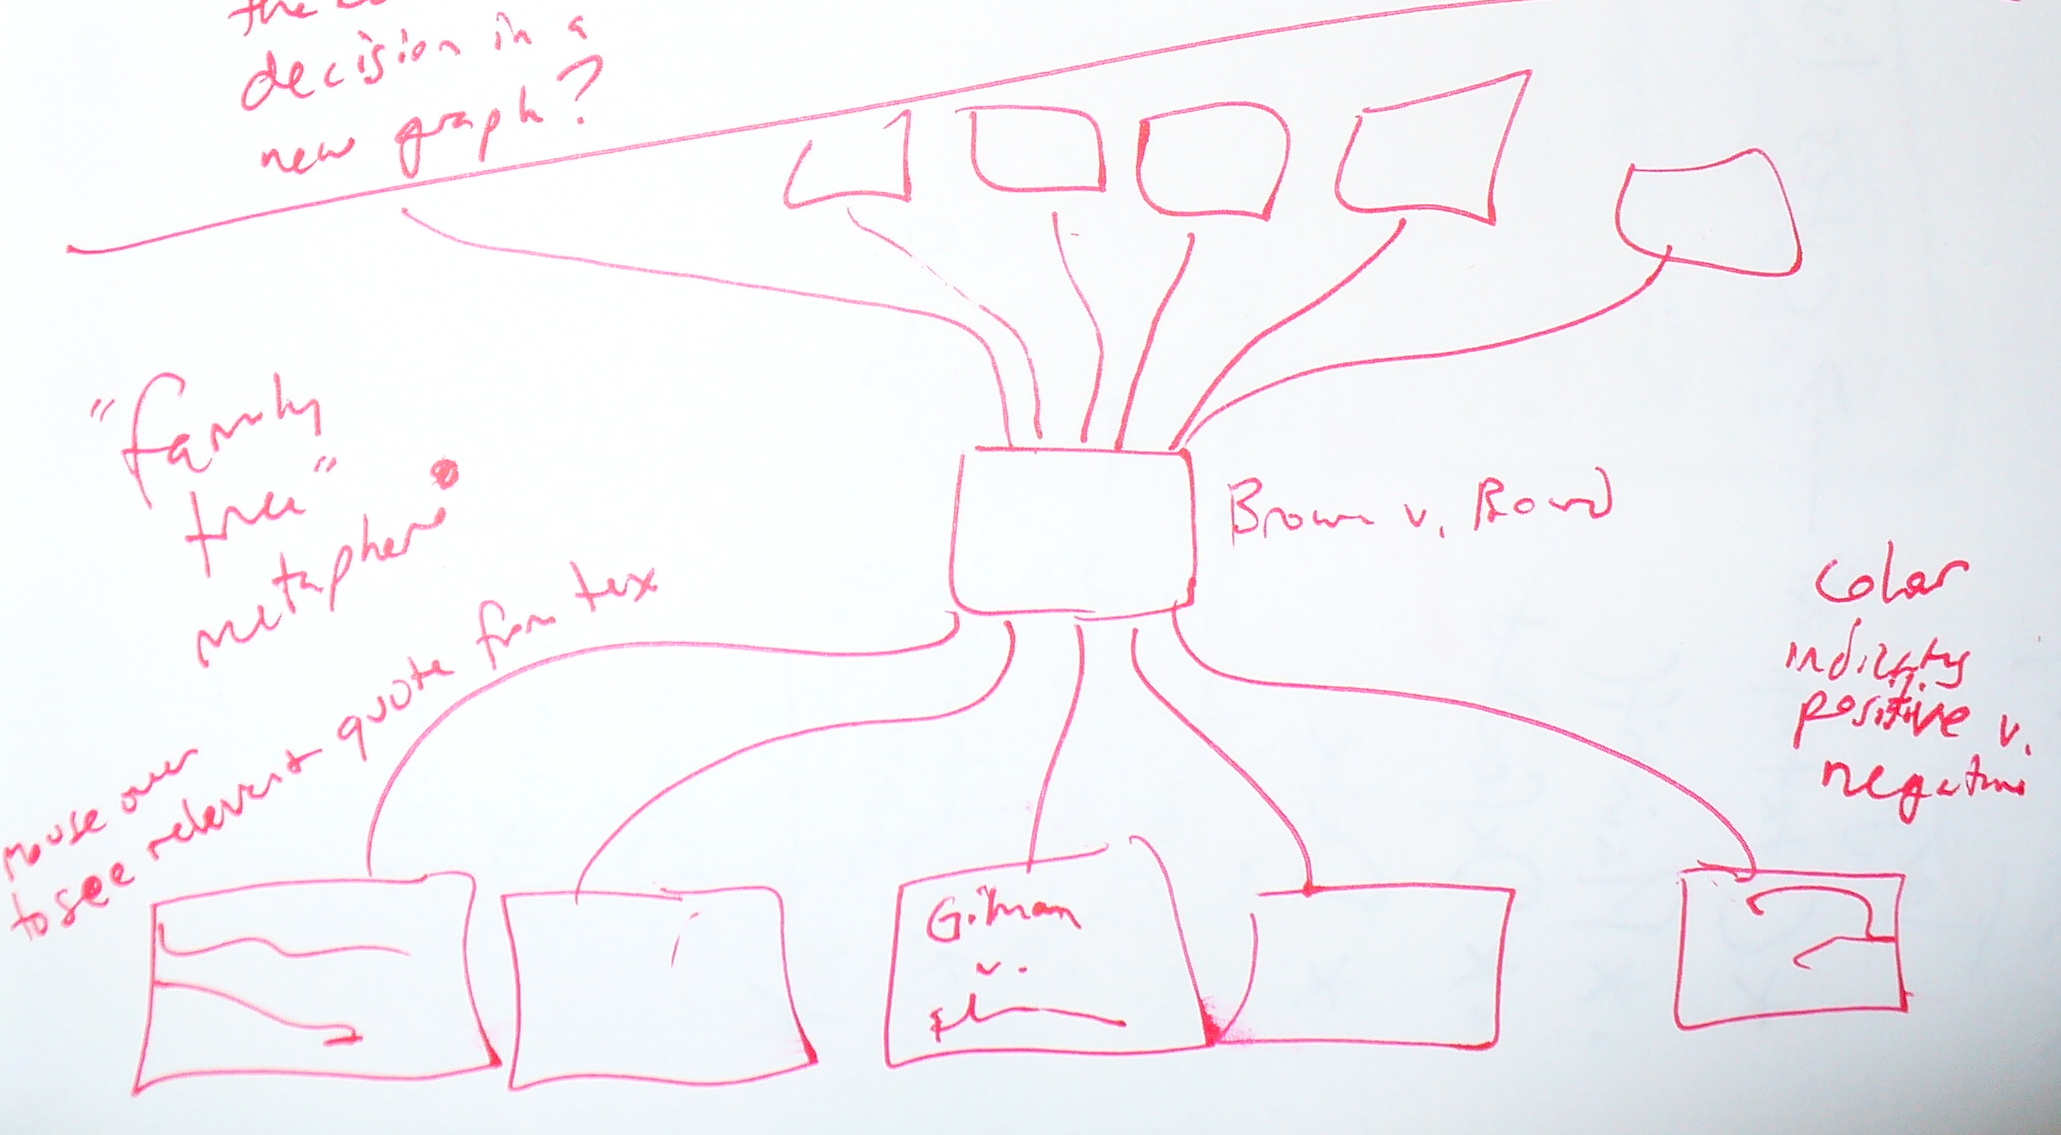 the
decision in a
new graph?
"family
tree"
metaphere
Brown v. Board
color
indicates
positive v.
negative
mouse over
to see relevant quote from tex
Gilman
v.